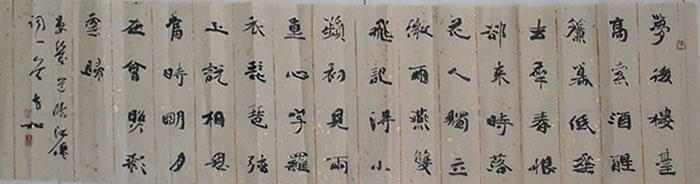 夢後樓臺
高鎖酒醒
簾幕低垂
去年春恨
卻來時落
花人獨立
微雨燕雙
飛記得小
蘋初見兩
重心字羅
衣琵琶弦
上說相思
當時明月
在曾照彩
雲歸
晏幾道臨江仙
詞一首